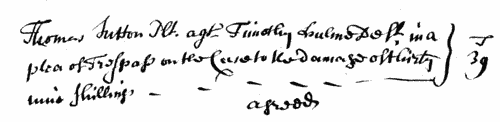 Thomas Sutton Plt. agt. Timothy Hulme Deft. in a
plea of Trespass on the Case to the damage of thirty
nine shillings
agreed
39